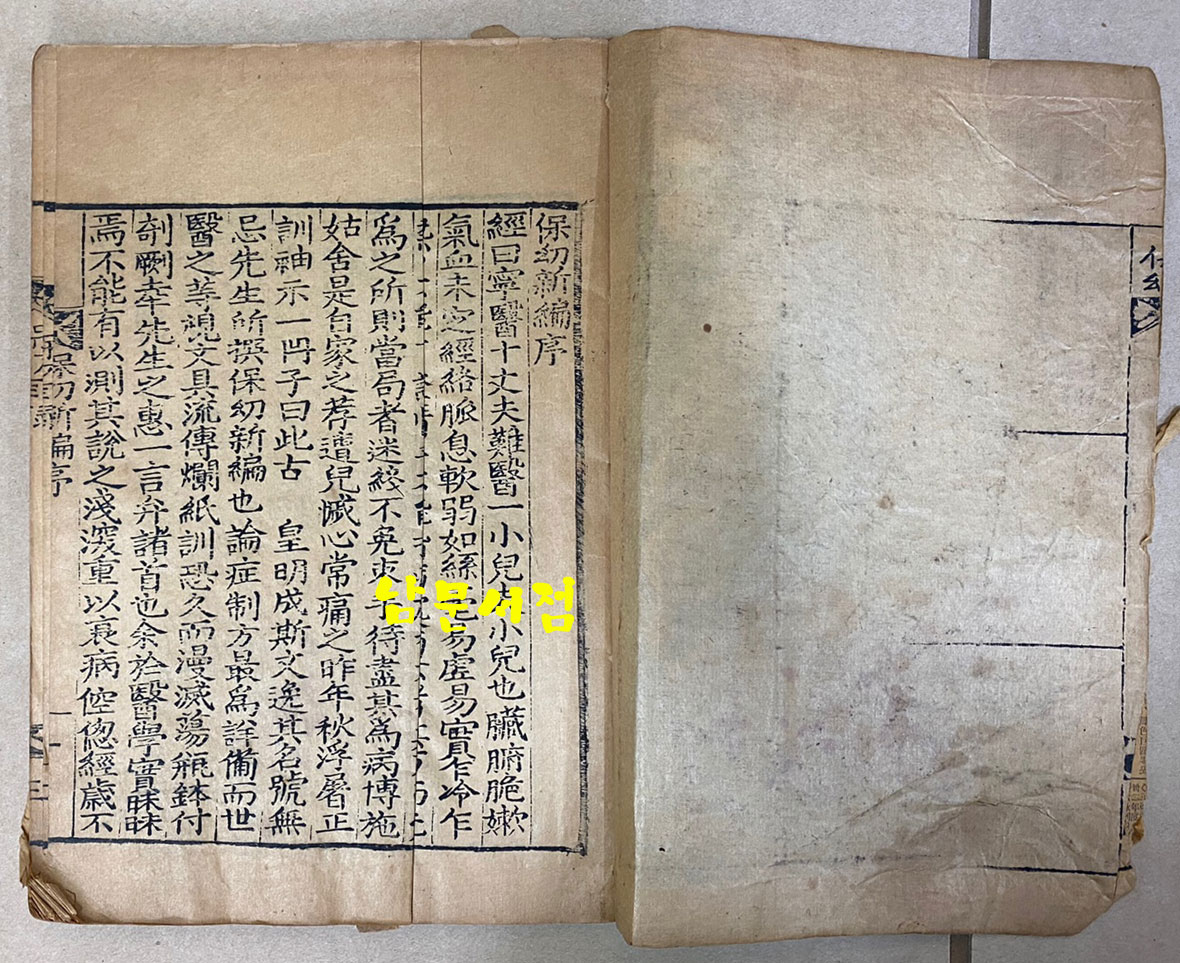 保幼新編序
經曰寧醫十丈夫難醫一小兒夫小兒也臟腑脆嫩
氣血未定經絡脈息軟弱如絲毛易虛易實乍冷乍
爲之所則當局者迷終不免束手待盡其爲病博施
姑舍是自家之荐遭兒慽心常痛之昨年秋浮屠正
訓袖示一冊子曰此古 皇明成斯文逸其名號無
忌先生所撰保幼新編也論症制方最爲詳備而世
醫之等視文具流傳爛紙訓恐久而漫滅蕩瓶鉢付
剞劂幸先生之惠一言弁諸首也余於醫學實昧昧
焉不能有以測其說之淺深重以衰病倥偬經歲不
保幼新編序 一
남문서점